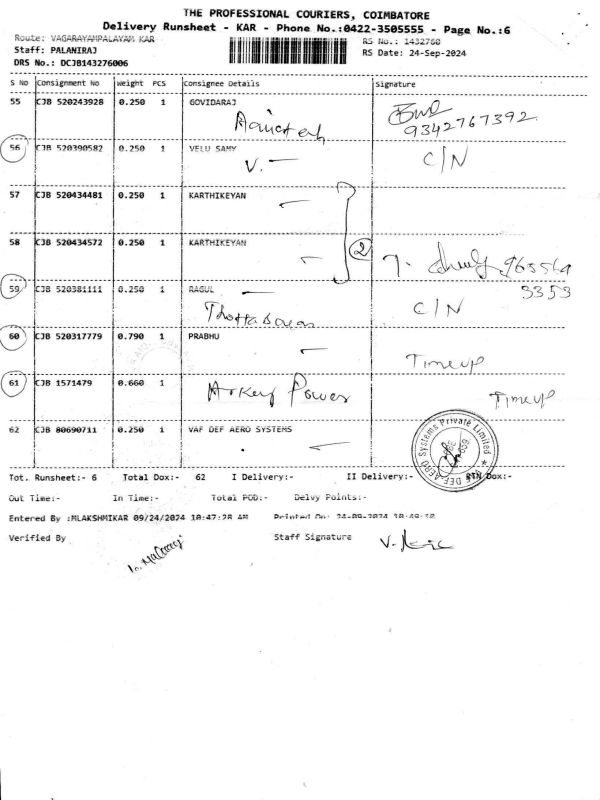 THE PROFESSIONAL COURIERS, COIMBATORE
Delivery Runsheet - KAR - Phone No.:0422-3505555 - Page No.:6
Route: VAGARAYAMPALAYAM KAR
RS No.: 1432760
Staff: PALANIRAJ
RS Date: 24-Sep-2024
DRS No.: DCJB143276006
S No Consignment No Weight PCS Consignee Details Signature
55 CJB 520243928 0.250 1 GOVIDARAJ
9342767392
56 CJB 520390582 0.250 1 VELU SAMY C/N
V.
57 CJB 520434481 0.250 1 KARTHIKEYAN
2
58 CJB 520434572 0.250 1 KARTHIKEYAN
59 CJB 520381111 0.250 1 RAGUL
3353
C/N
60 CJB 520317779 0.790 1 PRABHU
Timeup
61 CJB 1571479 0.660 1 Arkey Power Timeup
62 CJB 80690711 0.250 1 VAF DEF AERO SYSTEMS
DEF-AERO Systems Private Limited
Tot. Runsheet:- 6 Total Dox:- 62 I Delivery:- II Delivery:- RTN Dox:-
Out Time:- In Time:- Total POD:- Delvy Points:-
Entered By :MLAKSHMIKAR 09/24/2024 10:47:28 AM Printed On: 24-09-2024 10:49:10
Verified By Staff Signature